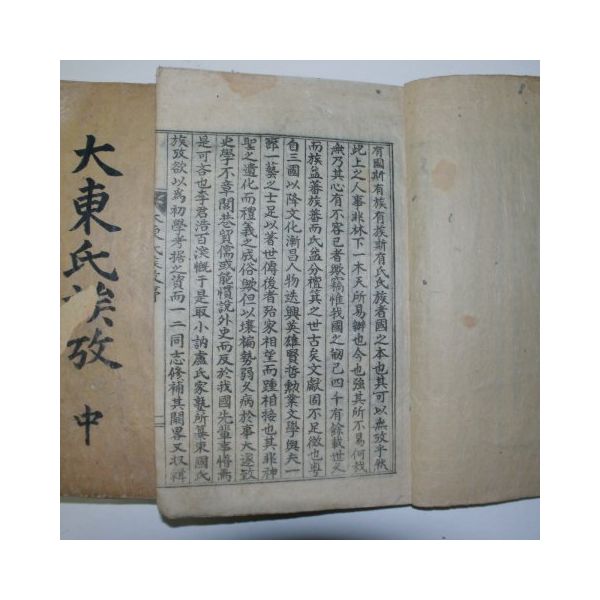 大東氏族攷
中
有國斯有族有族斯有氏氏族者國之本也其可以無攷乎然
此上之人事非林下一木天所易辦也今也強其所不易何哉
無乃其心有不容已者歟竊惟我國之 已四千有餘載世
而族益蕃族蕃而氏益分檀箕之世古矣文獻固不足徵也
自三國以降文化漸昌人物迭興英雄賢哲勳業文學與夫一
一藝之士足以著世傳後者殆家相望而踵相接也其
聖之遺化而禮義之成俗歟但以壤褊勢弱久病於事大遂致
史學不章閭巷貿儒或能慣說外史而反於我國先輩事
是可吝也李君浩百 慨于是取小訥盧氏家塾所纂東國氏
族攷欲以爲初學考据之資而一二同志修補其闕畧又
大東氏族攷序